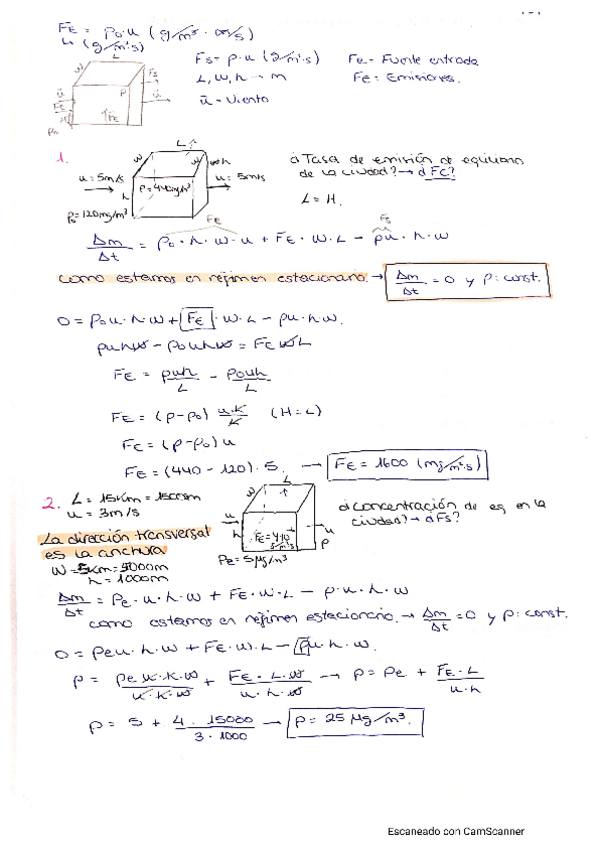 FE = ρ₀·u (g/m³ · m/s)
↳ (g/m²s)
L
W
Fs = ρ·u (g/m²·s)
L, W, h → m
ū = Viento
Fe = Fuente entrada
FE = Emisiones.
1.
u = 5m/s
ρ = 440mg/m³
u = 5m/s
ρ₀ = 120mg/m³
¿Tasa de emisión de equilibrio
de la ciudad? → ¿FC?
L = H.
Δm/Δt = ρ₀·h·w·u + FE·W·L − ρu·h·w
como estamos en régimen estacionario → Δm/Δt = 0 y ρ: const.
0 = ρ₀u·h·w + FE·W·L − ρu·h·w.
ρuhw − ρ₀uhw = FE WL
FE = ρuh/L − ρ₀uh/L
FE = (ρ−ρ₀) u·h/h (H=L)
FE = (ρ−ρ₀)u
FE = (440 − 120)·5. → FE = 1600 (mg/m²·s)
2.
L = 15Km = 15000m
u = 3m/s
La dirección transversal
es la anchura
W = 5Km = 5000m
h = 1000m
ρe = 5μg/m³
¿concentración de eq en la
ciudad? → ¿Fs?
Δm/Δt = ρe·u·h·w + FE·W·L − ρ·u·h·w
como estamos en régimen estacionario → Δm/Δt = 0 y ρ: const.
0 = ρeu·h·w + FE·W·L − ρu·h·w.
ρ = ρe u·h·w/u·h·w + FE·L·w/u·h·w → ρ = ρe + FE·L/u·h
ρ = 5 + 4·15000/3·1000 → ρ = 25 μg/m³.
Escaneado con CamScanner